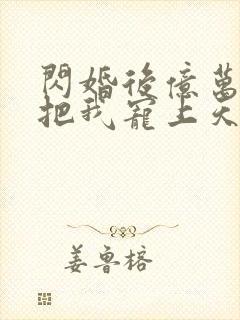 閃婚後億萬
把我寵上天
姜魯榕